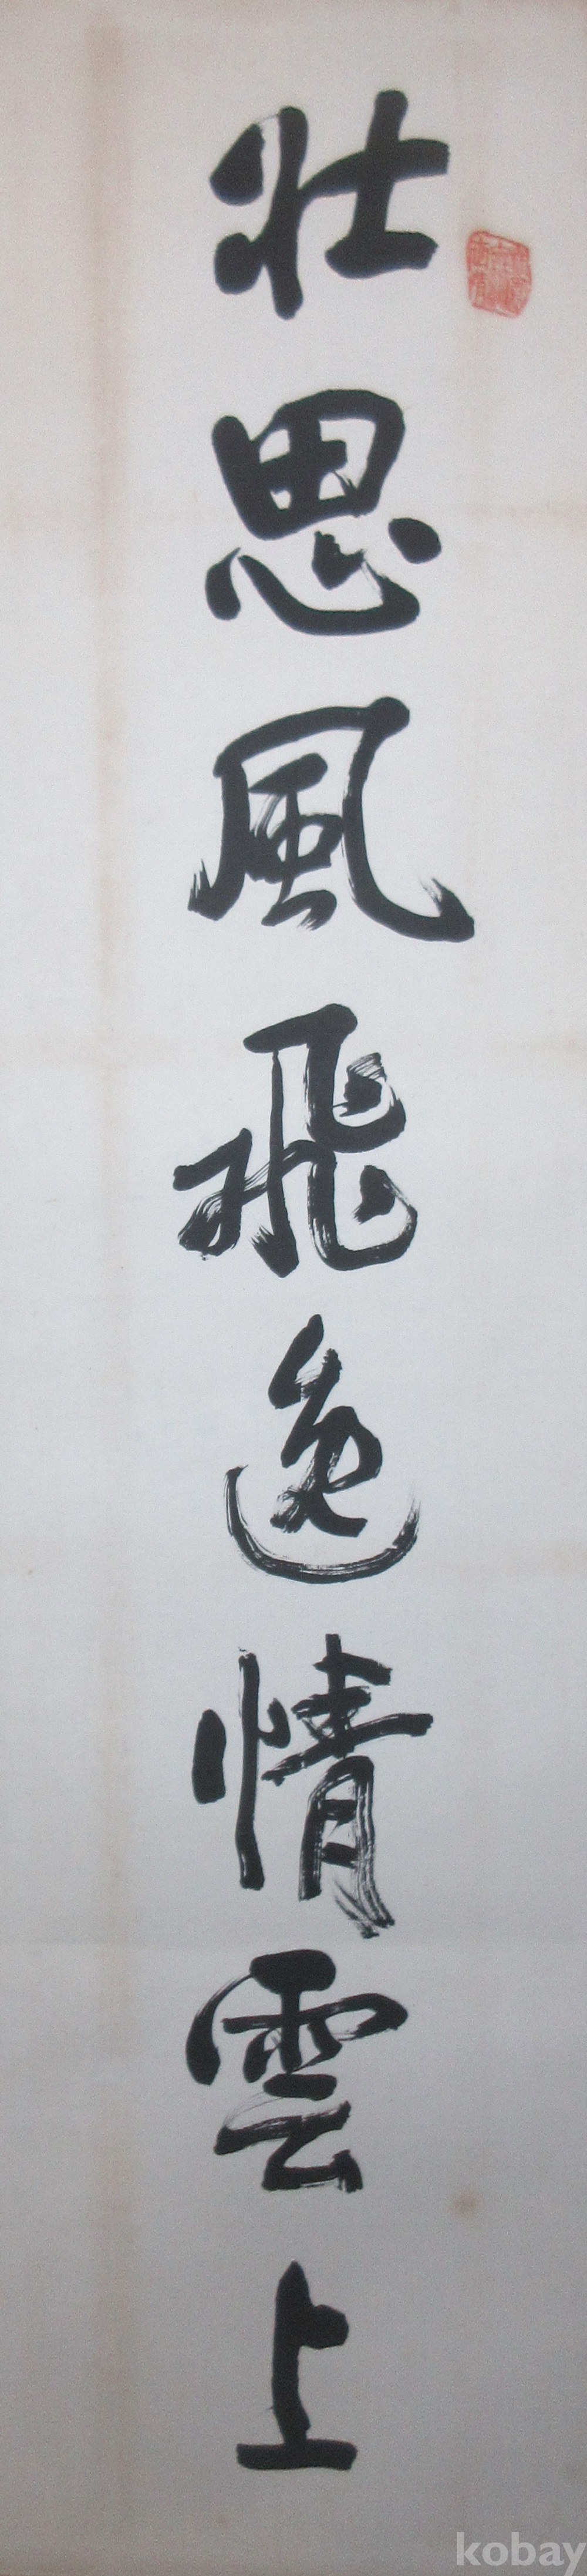 壯思風飛逸情雲上
kobay